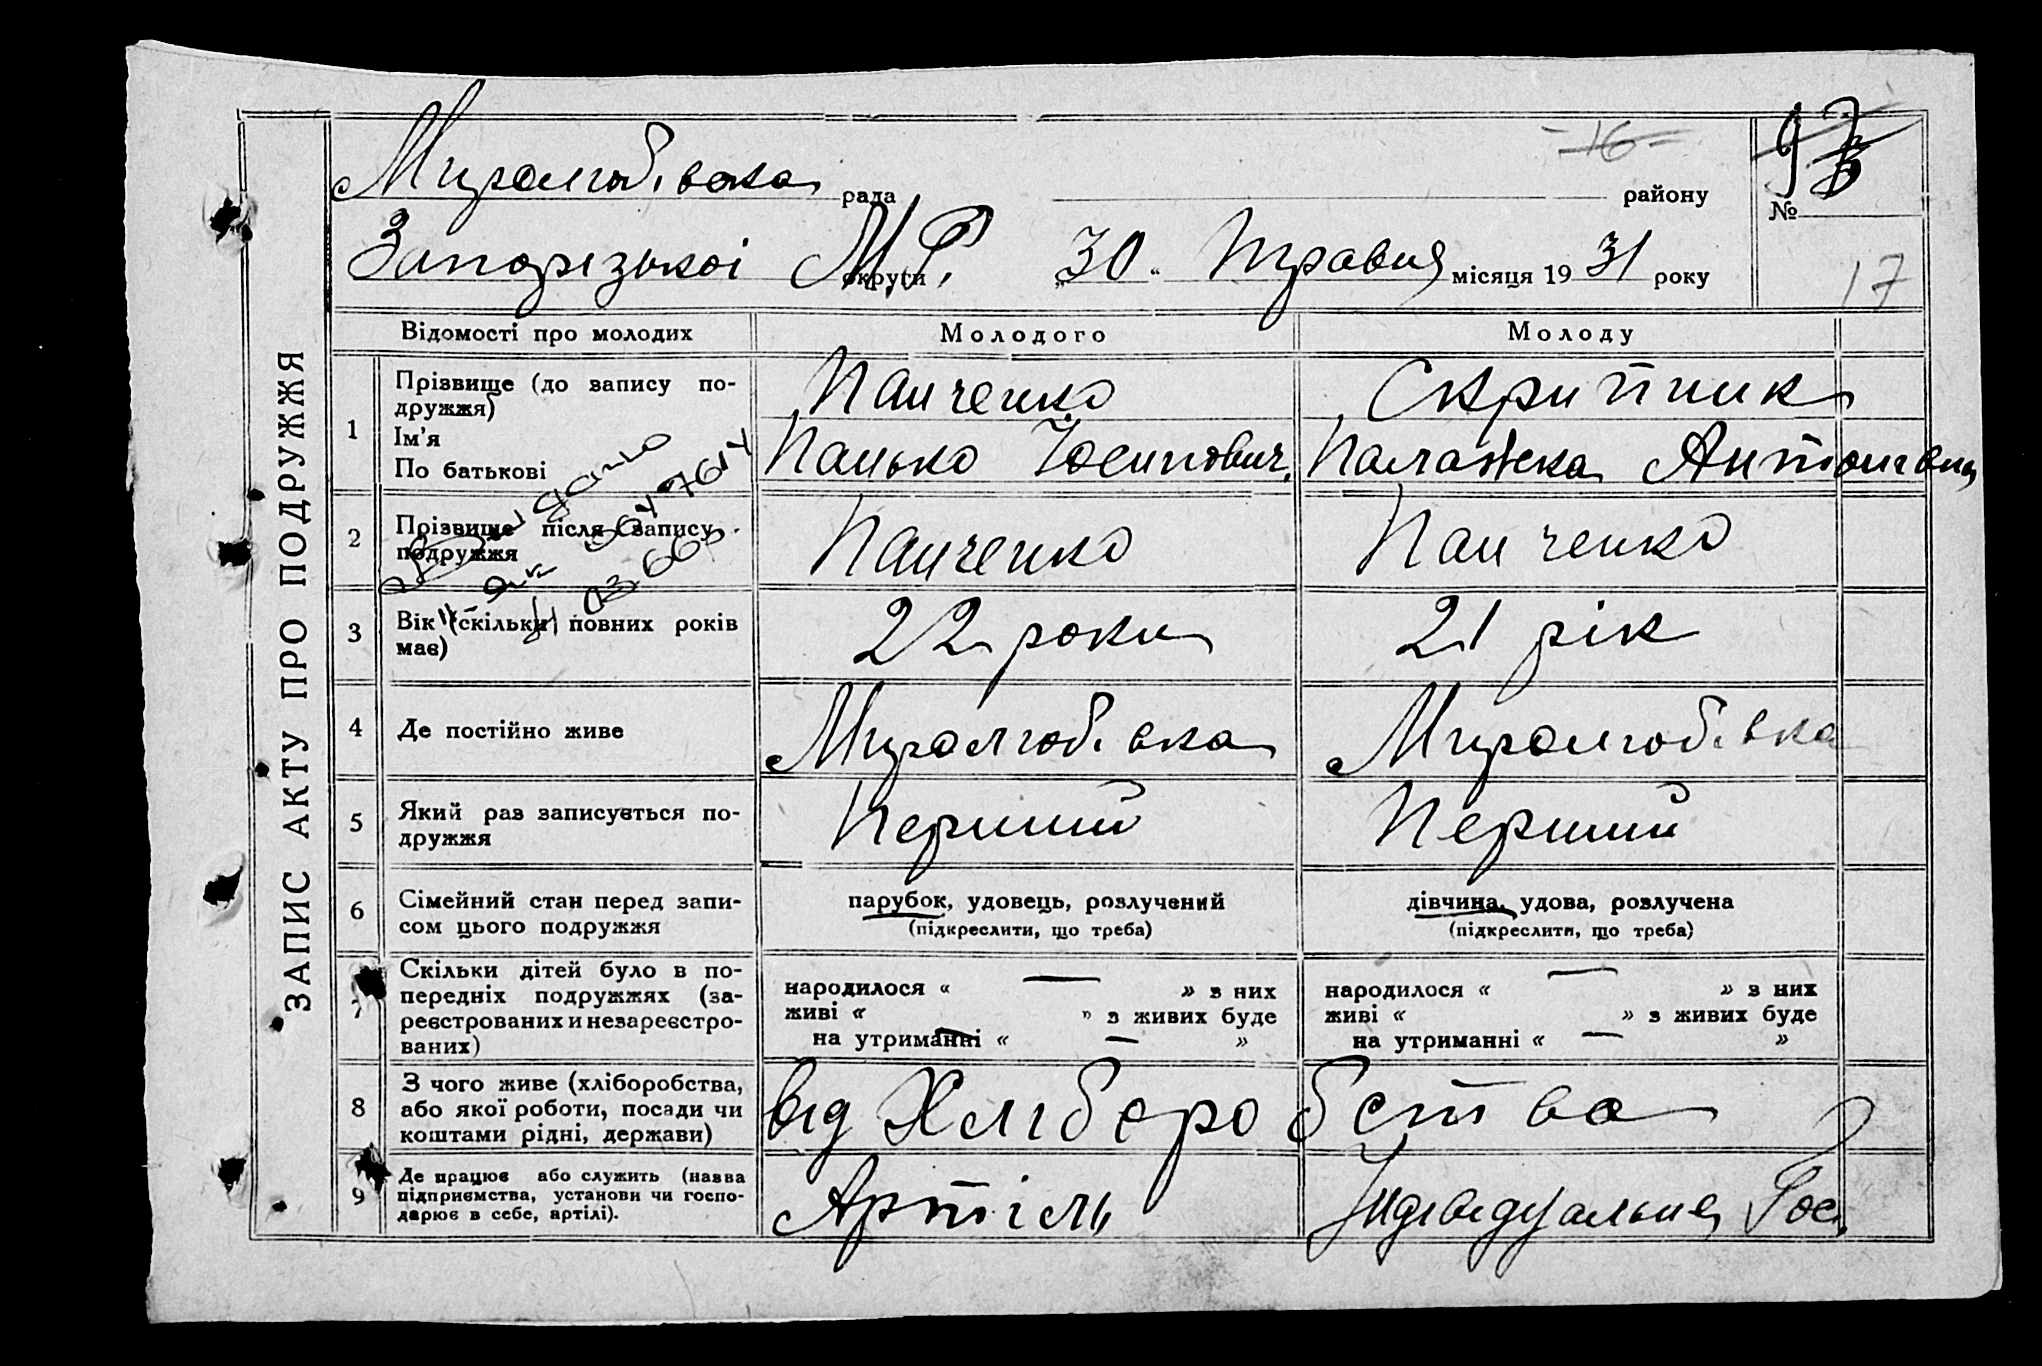 ЗАПИС АКТУ ПРО ПОДРУЖЖЯ
-16-
Миролюбівська рада району
№ 9
Запорізької М.Р. округи „30“ Травня місяця 1931 року
17
Відомості про молодих Молодого Молоду
1 Прізвище (до запису по-
дружжя)
Ім’я
По батькові
Панченко Скрипник
Панько Йосипович Палажка Антонівна
2 Прізвище після запису
подружжя
Панченко Панченко
3 Вік (скільки повних років
має)
22 роки 21 рік
4 Де постійно живе Миролюбівка Миролюбівка
5 Який раз записується по-
дружжя
Перший Перший
6 Сімейний стан перед запи-
сом цього подружжя
парубок, удовець, розлучений дівчина, удова, розлучена
(підкреслити, що треба) (підкреслити, що треба)
7 Скільки дітей було в по-
передніх подружжях (за-
реєстрованих и незареєстро-
ваних)
народилося « — » з них народилося « — » з них
живі « » з живих буде живі « » з живих буде
на утриманні « — » на утриманні « — »
8 З чого живе (хліборобства,
або якої роботи, посади чи
коштами рідні, держави)
від Хліборобства
9 Де працює або служить (назва
підприємства, установи чи госпо-
дарює в себе, артілі).
Артіль Індівідуальне Гос.